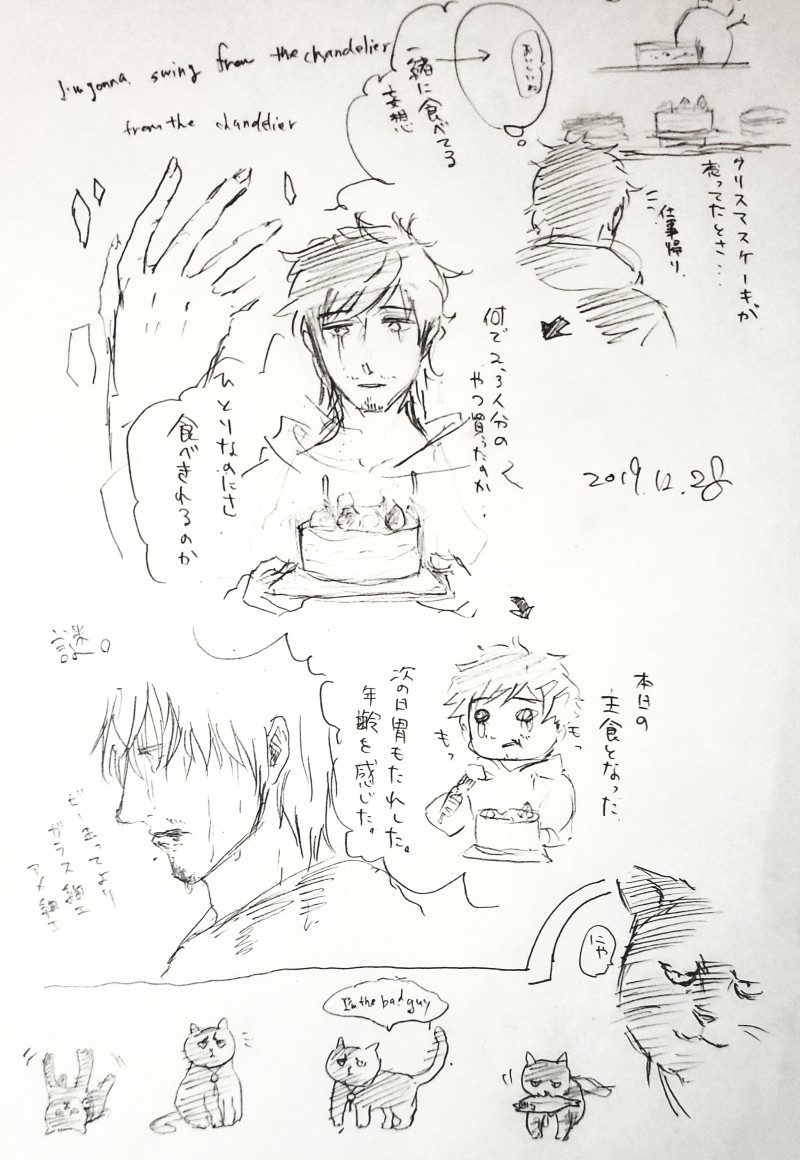 I'm gonna swing from the chandelier
from the chandelier
一緒に食べてる
妄想
おいしいね
クリスマスケーキが
売ってたとさ…
仕事帰り
何で2,3人分の
やつ買ったのか…
ひとりなのにさ
食べきれるのか
2019.12.28
謎。
本日の
主食となった
もっ
もっ
次の日胃もたれした。
年齢を感じた。
ビー玉ってより
ガラス細工
アメ細工
にゃ
I'm the bad guy